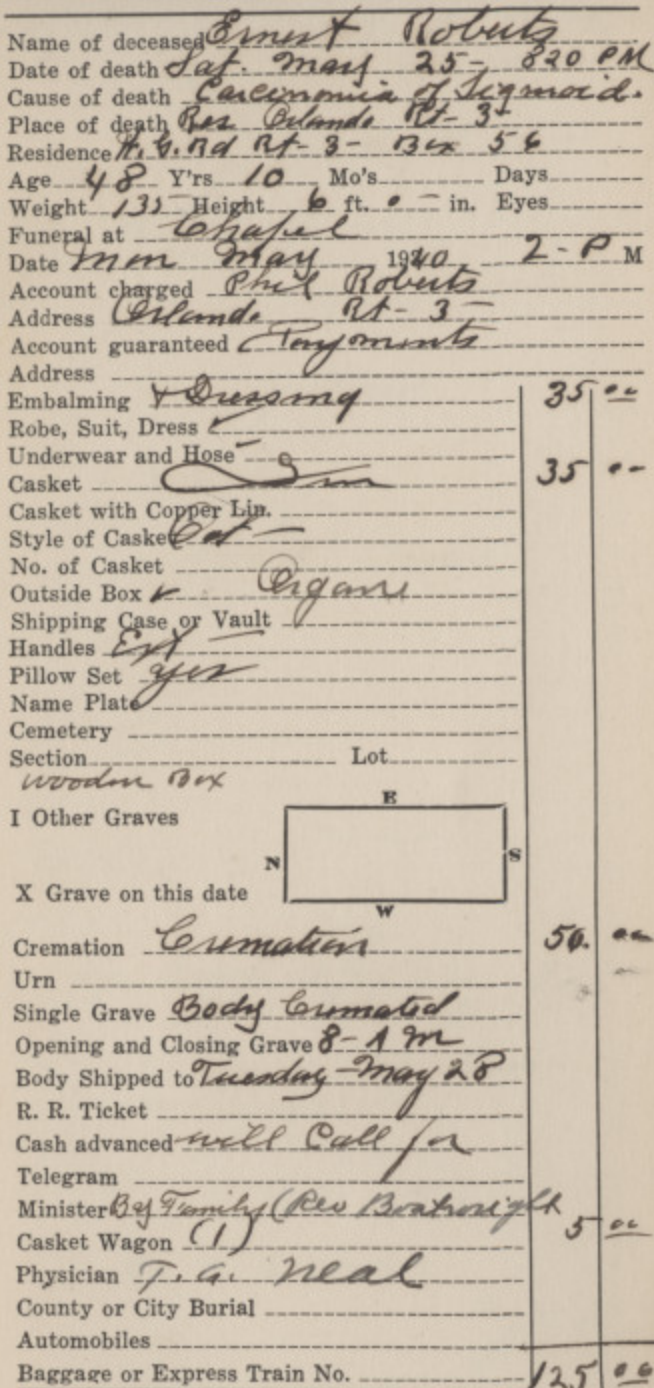 Name of deceased Ernest Roberts
Date of death Sat. May 25 - 820 PM
Cause of death Carcinomia of Sigmoid.
Place of death Res Orlando Rt - 3 -
Residence W. G. Rd Rt - 3 - Box 56
Age 48 Y'rs 10 Mo's Days
Weight 135 Height 6 ft. 0 - in. Eyes
Funeral at Chapel
Date Mon May 1940 2 - P M
Account charged Phil Roberts
Address Orlando Rt - 3 -
Account guaranteed
Address
Embalming & Dressing 35 00
Robe, Suit, Dress ✓
Underwear and Hose -
Casket 35 00
Casket with Copper Lin.
Style of Casket Oct -
No. of Casket
Outside Box ✓
Shipping Case or Vault
Handles Ext
Pillow Set yes
Name Plate
Cemetery
Section Lot
Wooden Box
E
I Other Graves
N S
X Grave on this date
W
Cremation Cremation 50. 00
Urn
Single Grave Body Cremated
Opening and Closing Grave 8 - A M
Body Shipped to Tuesday - May 28
R. R. Ticket
Cash advanced will Call for
Telegram
Minister By Family (Rev Boatwright
Casket Wagon (1) 5 00
Physician T. A. Neal
County or City Burial
Automobiles
Baggage or Express Train No. 125 00